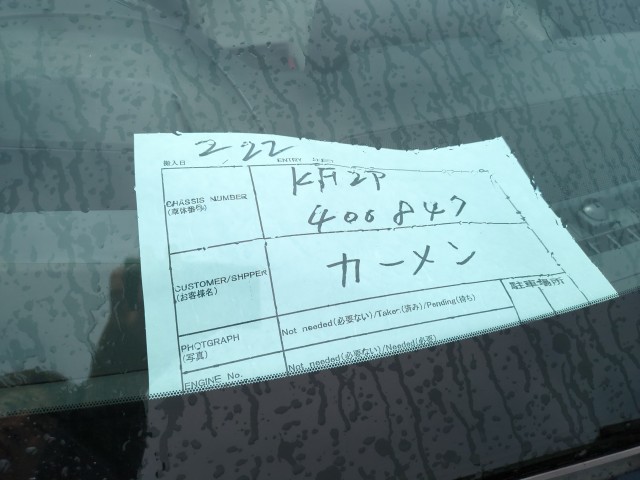 搬入日 2.22 ENTRY
CHASSIS NUMBER KF2P
(車体番号) 400847
CUSTOMER/SHIPPER カーメン
(お客様名)
駐車場所
PHOTGRAPH Not needed(必要ない)/Taken(済み)/Pending(待ち)
(写真)
ENGINE No. Not needed(必要ない)/Needed(必要)